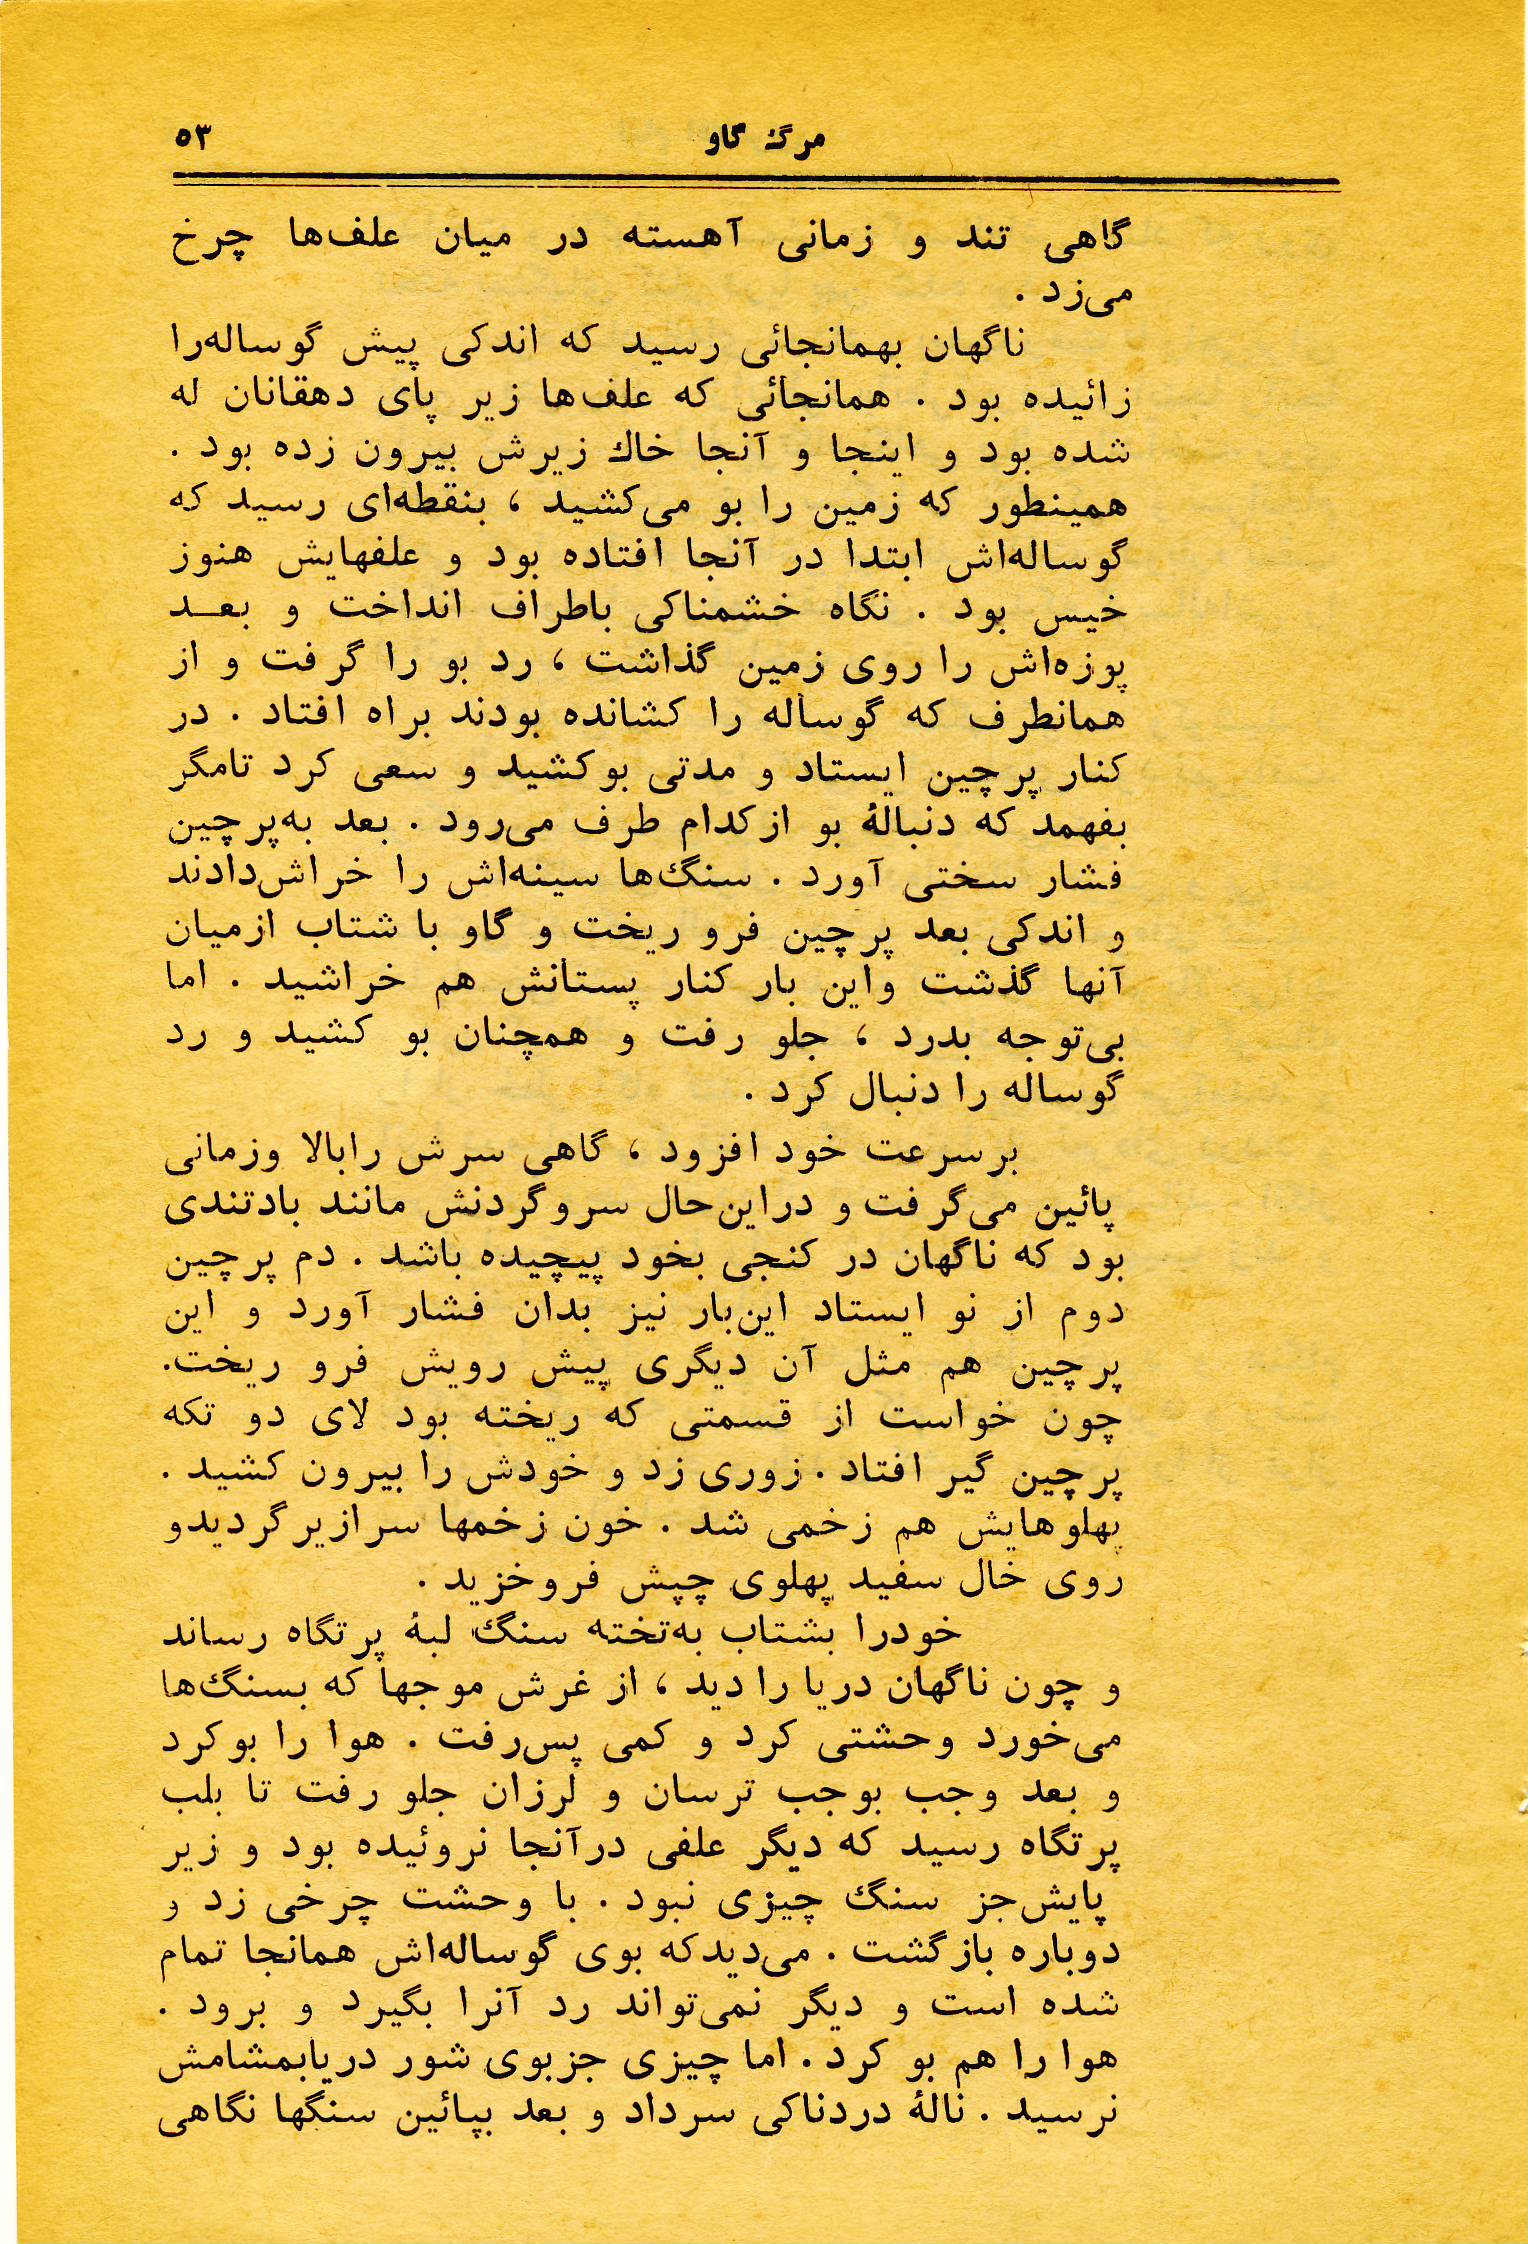 مرگ گاو ۵۳
گاهی تند و زمانی آهسته در میان علف‌ها چرخ
می‌زد .
ناگهان بهمانجائی رسید که اندکی پیش گوساله‌را
زائیده بود . همانجائی که علف‌ها زیر پای دهقانان له
شده بود و اینجا و آنجا خاك زیرش بیرون زده بود .
همینطور که زمین را بو می‌کشید ، بنقطه‌ای رسید که
گوساله‌اش ابتدا در آنجا افتاده بود و علفهایش هنوز
خیس بود . نگاه خشمناکی باطراف انداخت و بعد
پوزه‌اش را روی زمین گذاشت ، رد بو را گرفت و از
همانطرف که گوساله را کشانده بودند براه افتاد . در
کنار پرچین ایستاد و مدتی بوکشید و سعی کرد تامگر
بفهمد که دنبالهٔ بو ازکدام طرف می‌رود . بعد به‌پرچین
فشار سختی آورد . سنگ‌ها سینه‌اش را خراش‌دادند
و اندکی بعد پرچین فرو ریخت و گاو با شتاب ازمیان
آنها گذشت واین بار کنار پستانش هم خراشید . اما
بی‌توجه بدرد ، جلو رفت و همچنان بو کشید و رد
گوساله را دنبال کرد .
برسرعت خود افزود ، گاهی سرش رابالا وزمانی
پائین می‌گرفت و دراین‌حال سروگردنش مانند بادتندی
بود که ناگهان در کنجی بخود پیچیده باشد . دم پرچین
دوم از نو ایستاد این‌بار نیز بدان فشار آورد و این
پرچین هم مثل آن دیگری پیش رویش فرو ریخت.
چون خواست از قسمتی که ریخته بود لای دو تکه
پرچین گیر افتاد . زوری زد و خودش را بیرون کشید .
پهلوهایش هم زخمی شد . خون زخمها سرازیرگردیدو
روی خال سفید پهلوی چپش فروخزید .
خودرا بشتاب به‌تخته سنگ لبهٔ پرتگاه رساند
و چون ناگهان دریا را دید ، از غرش موجها که بسنگ‌ها
می‌خورد وحشتی کرد و کمی پس‌رفت . هوا را بوکرد
و بعد وجب بوجب ترسان و لرزان جلو رفت تا بلب
پرتگاه رسید که دیگر علفی درآنجا نروئیده بود و زیر
پایش‌جز سنگ چیزی نبود . با وحشت چرخی زد و
دوباره بازگشت . می‌دیدکه بوی گوساله‌اش همانجا تمام
شده است و دیگر نمی‌تواند رد آنرا بگیرد و برود .
هوا را هم بو کرد . اما چیزی جزبوی شور دریابمشامش
نرسید . نالهٔ دردناکی سرداد و بعد بپائین سنگها نگاهی